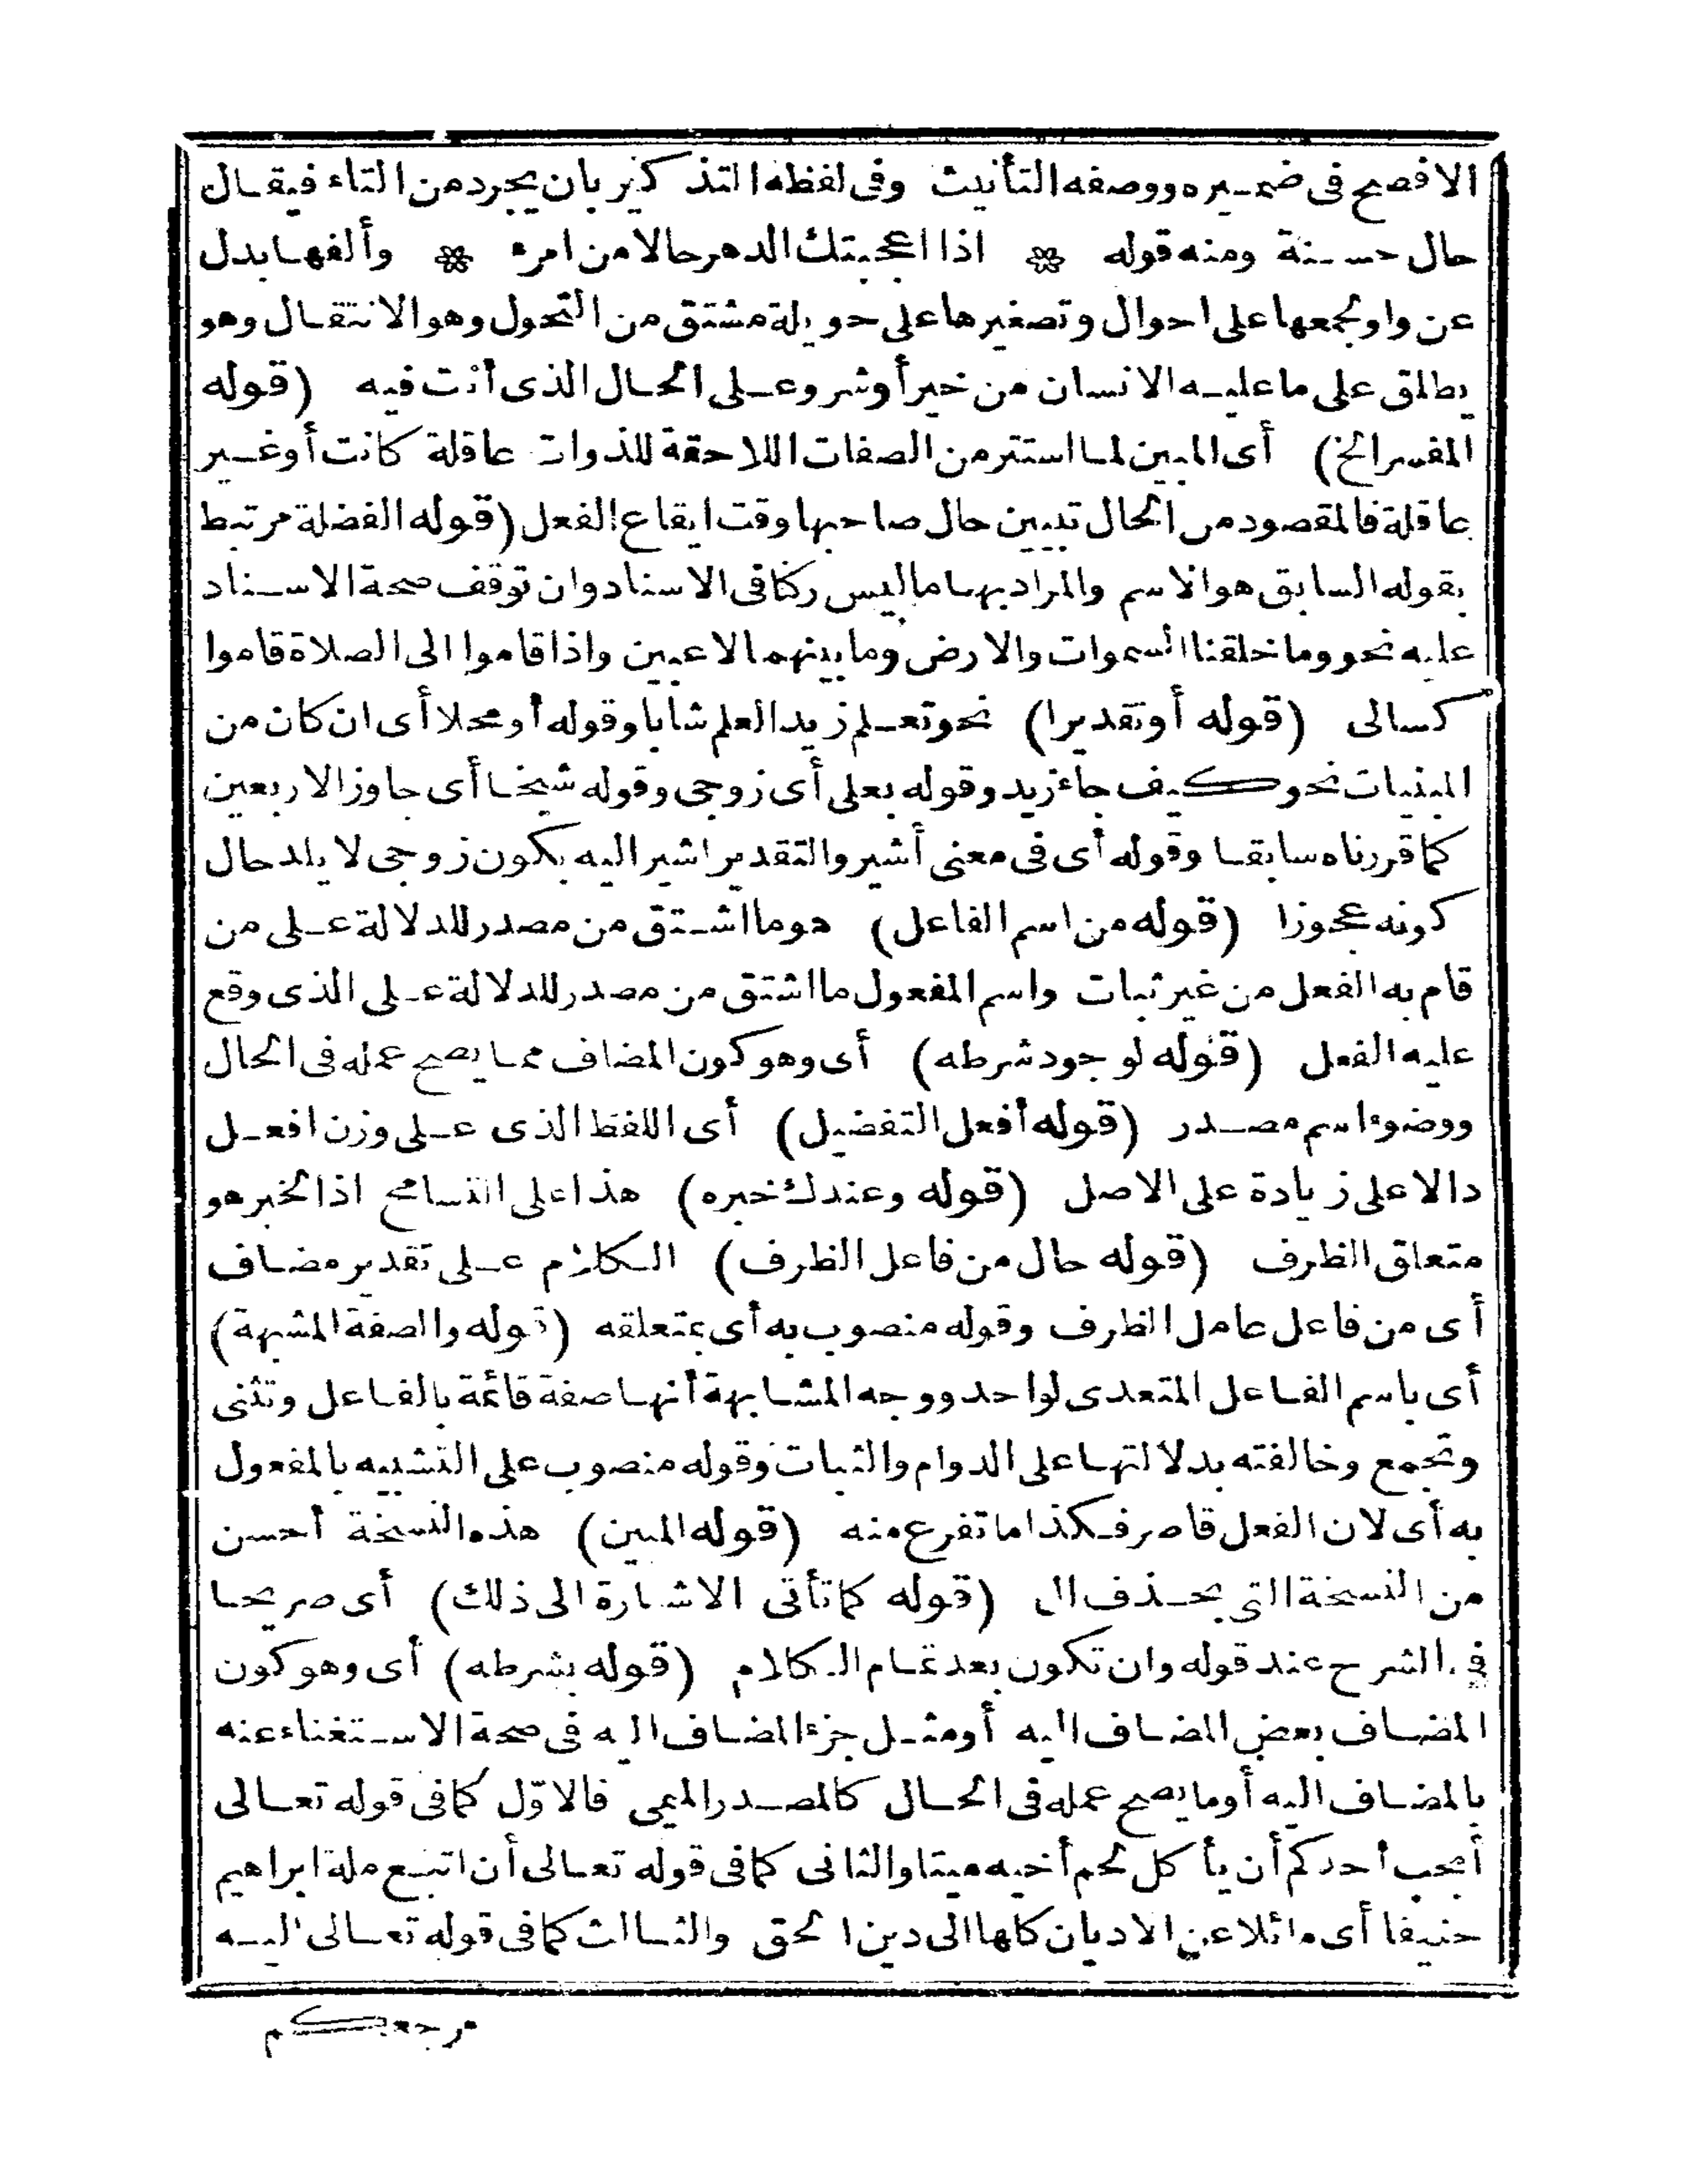 الافصح فى ضميره ووصفه التأنيث وفى لفظه التذكير بان يجرد من التاء فيقال
حال حسنة ومنه قوله ❀ اذا اعجبتك الدهر حالا من امرء ❀ وألفها بدل
عن واو لجمعها على احوال وتصغيرها على حويلة مشتق من التحول وهو الانتقال وهو
يطلق على ما عليه الانسان من خير أو شر وعلى الحال الذى أنت فيه (قوله
المفسر الخ) أى المبين لما استتر من الصفات اللاحقة للذوات عاقلة كانت أو غير
عاقلة فالمقصود من الحال تبيين حال صاحبها وقت ايقاع الفعل (قوله الفضلة مرتبط
بقوله السابق هو الاسم والمراد بها ما ليس ركنا فى الاسناد وان توقف صحة الاسناد
عليه نحو وما خلقنا السموات والارض وما بينهما لاعبين واذا قاموا الى الصلاة قاموا
كسالى (قوله أو تقديرا) نحو تعلم زيد العلم شابا وقوله أو محلا أى ان كان من
المبنيات نحو كيف جاء زيد وقوله بعلى أى زوجى وقوله شيخا أى جاوز الاربعين
كما قررناه سابقا وقوله أى فى معنى أشير والتقدير اشير اليه بكون زوجى لا يلد حال
كونه عجوزا (قوله من اسم الفاعل) هو ما اشتق من مصدر للدلالة على من
قام به الفعل من غير ثبات واسم المفعول ما اشتق من مصدر للدلالة على الذى وقع
عليه الفعل (قوله لوجود شرطه) أى وهو كون المضاف مما يصح عمله فى الحال
ووضوء اسم مصدر (قوله أفعل التفضيل) أى اللفظ الذى على وزن افعل
دالا على زيادة على الاصل (قوله وعندك خبره) هذا على التسامح اذ الخبر هو
متعلق الظرف (قوله حال من فاعل الظرف) الكلام على تقدير مضاف
أى من فاعل عامل الظرف وقوله منصوب به أى بمتعلقه (قوله والصفة المشبهة)
أى باسم الفاعل المتعدى لواحد ووجه المشابهة أنها صفة قائمة بالفاعل وتثنى
وتجمع وخالفته بدلالتها على الدوام والثبات وقوله منصوب على التشبيه بالمفعول
به أى لان الفعل قاصر فكذا ما تفرع منه (قوله المبين) هذه النسخة أحسن
من النسخة التى بحذف ال (قوله كما تأتى الاشارة الى ذلك) أى صريحا
فى الشرح عند قوله وان تكون بعد تمام الكلام (قوله بشرطه) أى وهو كون
المضاف بعض المضاف اليه أو مثل جزء المضاف اليه فى صحة الاستغناء عنه
بالمضاف اليه أو ما يصح عمله فى الحال كالمصدر الميمى فالاوّل كما فى قوله تعالى
أيحب أحدكم أن يأكل لحم أخيه ميتا والثانى كما فى قوله تعالى أن اتبع ملة ابراهيم
حنيفا أى مائلا عن الاديان كلها الى دين الحق والثالث كما فى قوله تعالى اليه
مرجعكم